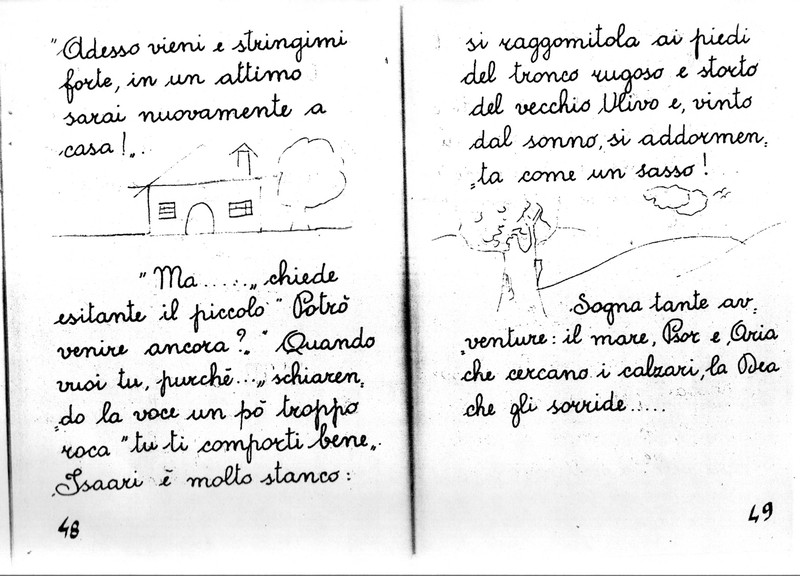 "Adesso vieni e stringimi
forte, in un attimo
sarai nuovamente a
casa!„.
"Ma.....„ chiede
esitante il piccolo "Potrò
venire ancora?„ "Quando
vuoi tu, purchè...„ schiaren,
,do la voce un pò troppo
roca "tu ti comporti bene„.
Isaari è molto stanco:
48
si raggomitola ai piedi
del tronco rugoso e storto
del vecchio Ulivo e, vinto
dal sonno, si addormen,
,ta come un sasso!
Sogna tante av,
,venture: il mare, Psor e Oria
che cercano i calzari, la Dea
che gli sorride.....
49